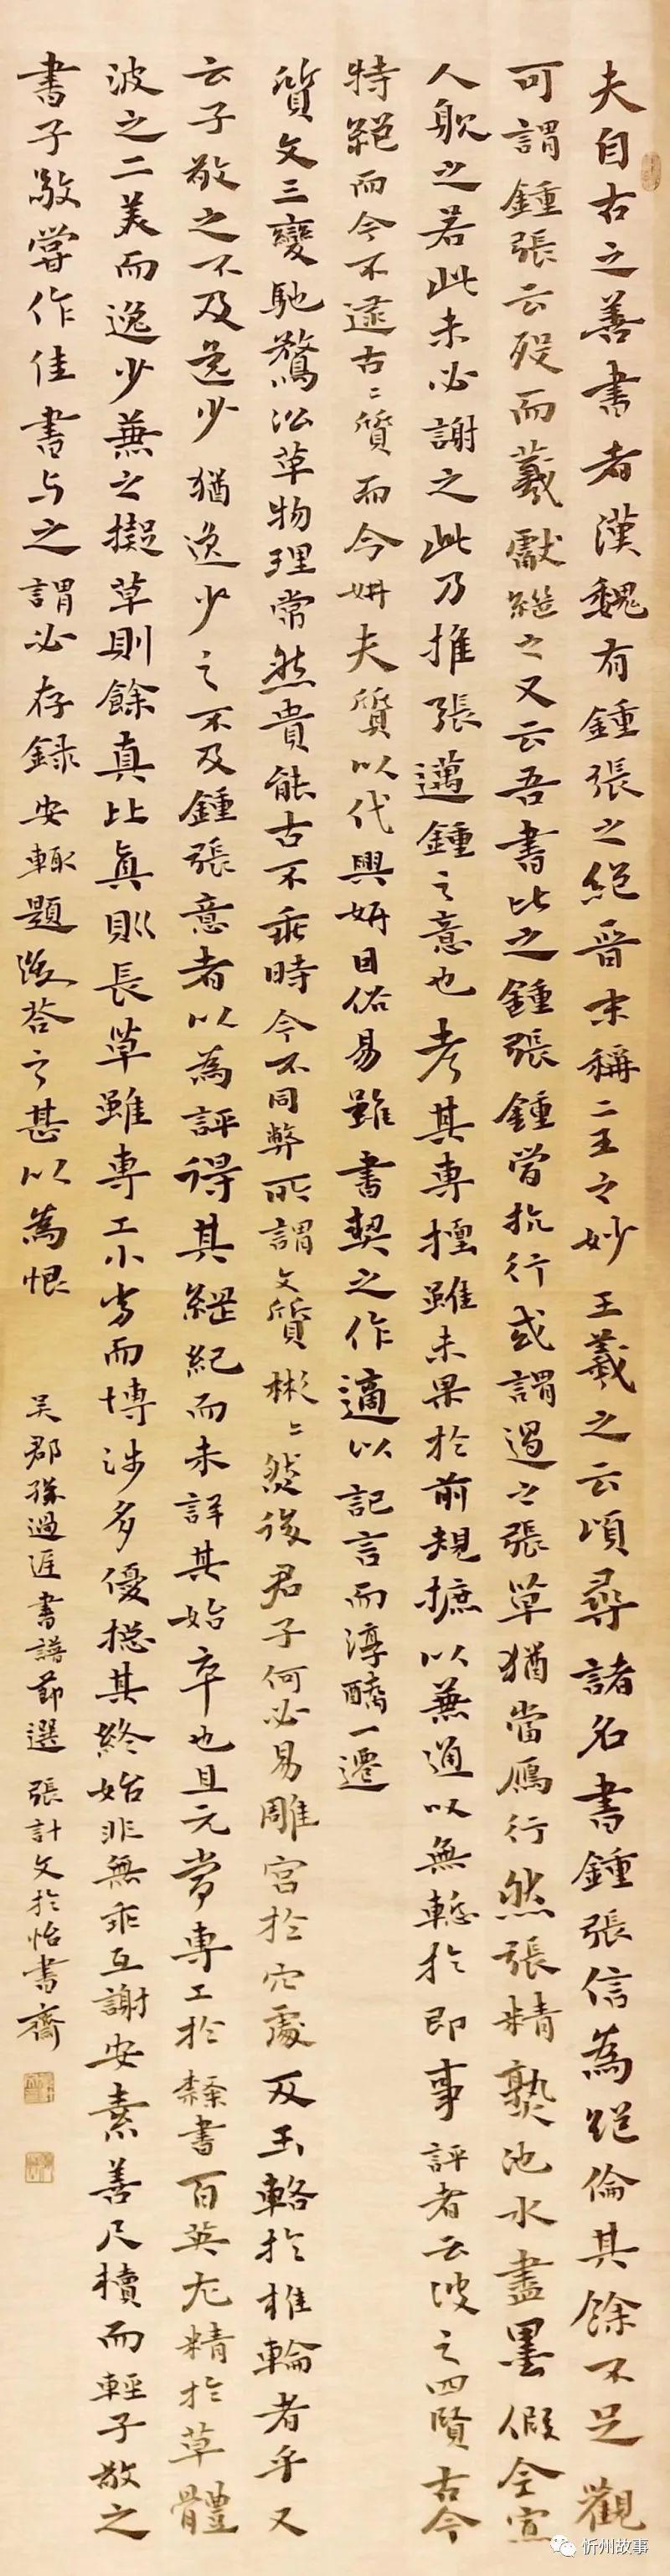 夫自古之善書者漢魏有鍾張之絕晉末稱二王之妙王羲之云頃尋諸名書鍾張信為絕倫其餘不足觀
可謂鍾張云歿而羲獻繼之又云吾書比之鍾張鍾當抗行或謂過之張草猶當鴈行然張精熟池水盡墨假令寡
人耽之若此未必謝之此乃推張邁鍾之意也考其專擅雖未果於前規摭以兼通故無慙於即事評者云彼之四賢古今
特絕而今不逮古〻質而今妍夫質以代興妍因俗易雖書契之作適以記言而淳醨一遷
質文三變馳騖沿革物理常然貴能古不乖時今不同弊所謂文質彬〻然後君子何必易雕宮於穴處反玉輅於椎輪者乎又
云子敬之不及逸少猶逸少之不及鍾張意者以為評得其綱紀而未詳其始卒也且元常專工於隸書百英尤精於草體
彼之二美而逸少兼之擬草則餘真比真則長草雖專工小劣而博涉多優揔其終始非無乖互謝安素善尺牘而輕子敬之
書子敬嘗作佳書与之謂必存録安輒題後答之甚以為恨
吳郡孫過庭書譜節選 張計文於怡書齋
忻州故事